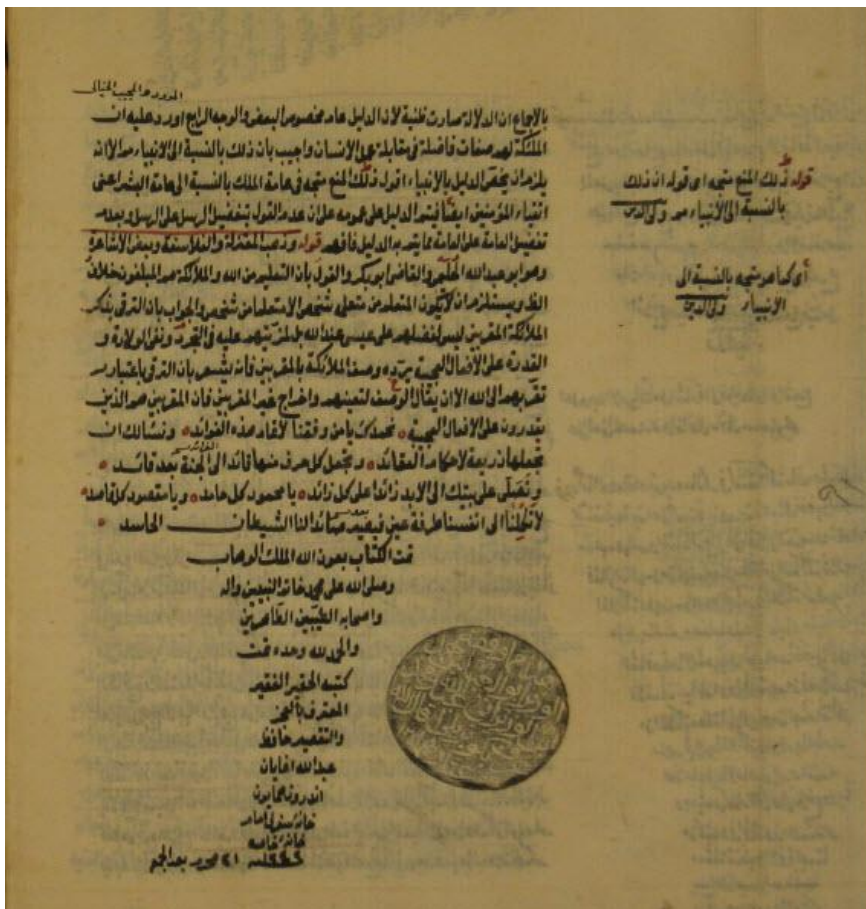 المورد هو المجيب الخيالى
بالاجماع ان الدلالة صارت ظنية لان الدليل عام مخصوص البعض والوجه الراجح اورد عليه ان
الملئكة لهم صفات فاضلة فى مقابلة عمل الانسان واجيب بان ذلك بالنسبة الى الانبياء مم الا انه
يلزم ان يختص الدليل بالانبياء اقول ذلك المنع متجه فى عامة الملك بالنسبة الى عامة البشر اعنى
اتقياء المؤمنين ايضا فيتم الدليل على عمومه على ان عدم القول بتفضيل الرسل على الرسل وبعدم
تفضيل العامة على العامة مما يتم به الدليل فافهم قوله وذهب المعتزلة والفلاسفة وبعض الاشاعرة
وهو ابو عبد الله الحليمى والقاضى ابو بكر والقول بأن التعليم من الله والملائكة هم المبلغون خلاف
الظ ويستلزم ان لا يكون المتعلم من متعلم شخص الا متعلما من شخص والجواب بان الترقى بذكر
الملائكة المقربين ليس لفضلهم على عيسى عبد الله بل لمزيتهم عليه فى التجرد ونفى الولادة و
القدرة على الافعال العجيبة يرده وصف الملائكة بالمقربين فانه يشعر بان الترقى باعتبار
تقربهم الى الله الا ان يقال الوصف لتعينهم واخراج غير المقربين فان المقربين هم الذين
يقدرون على الافعال العجيبة نحمدك يا من وفقتنا لالقاء هذه الفوائد ونسئالك ان
تجعلها ذريعة لاحكام العقائد وتجعل كل حرف منها قائدا الى الجنة بعد قائد
وتصلى على نبيك الى الابد زائدا على كل زائد يا محمود كل حامد ويا مقصود كل قاصد
لا تكلنا الى انفسنا طرفة عين فيصيد الشيطان الحاسد
تمت الكتاب بعون الله الملك الوهاب
وصلى الله على محمد خاتم النبيين واله
واصحابه الطيبين الطاهرين
والحمد لله وحده تمت
كتبه الحقير الفقير
المعترف بالعجز
والتقصير حافظ
عبد الله اغايان
اندرون همايون
خانه
قوله ذلك المنع متجه اى قوله ان ذلك
بالنسبة الى الانبياء مم ولى الدين
أى كما هو متجه بالنسبة الى
الانبياء ولى الدين